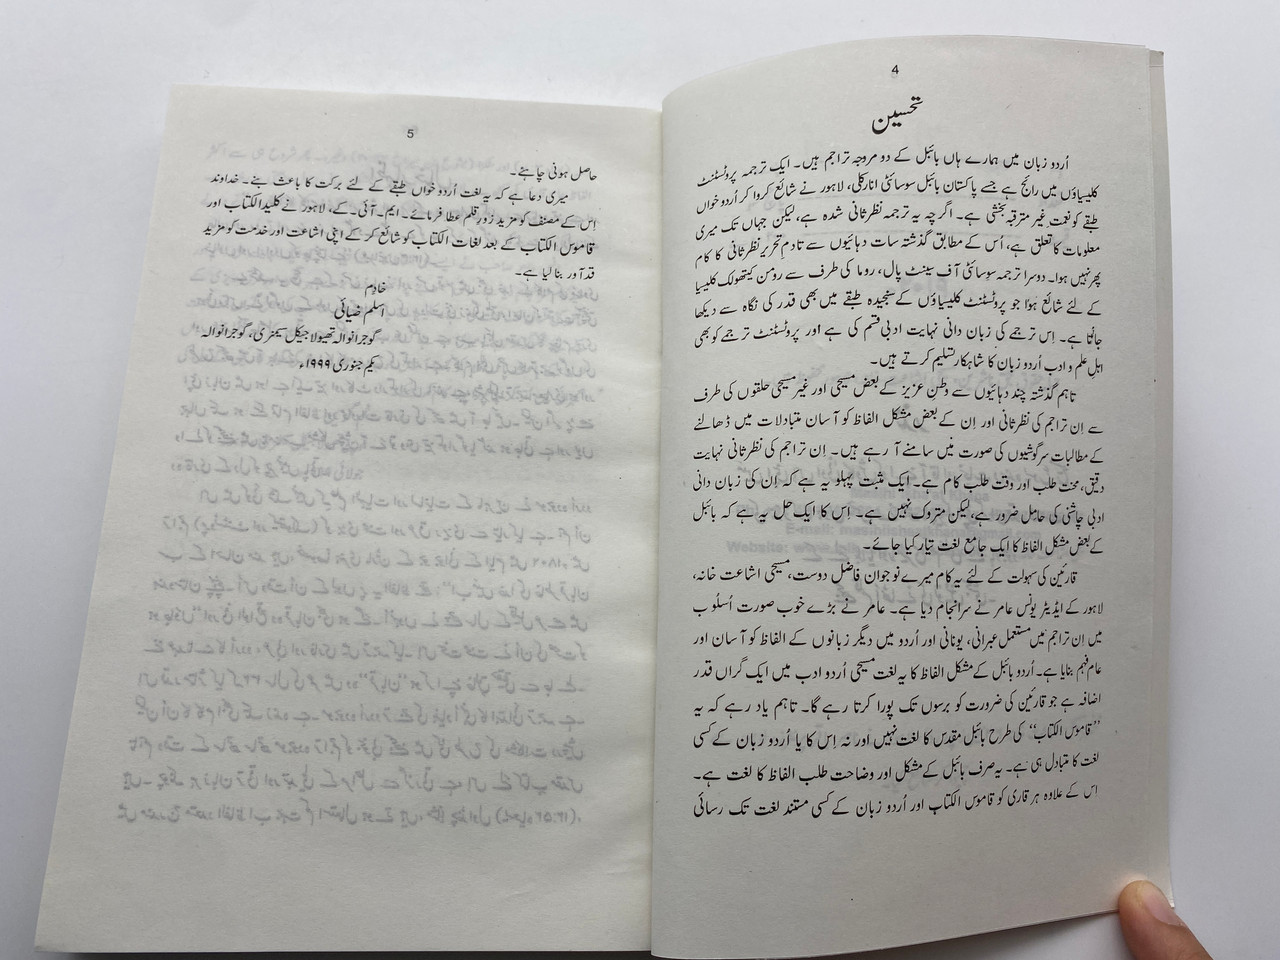 4
تحسین
اُردو زبان میں ہمارے ہاں بائبل کے دو مروجہ تراجم ہیں۔ ایک ترجمہ پروٹسٹنٹ
کلیسیاؤں میں رائج ہے جسے پاکستان بائبل سوسائٹی انارکلی، لاہور نے شائع کروا کر اُردو خواں
طبقے کو نعمت غیر مترقبہ بخشی ہے۔ اگرچہ یہ ترجمہ نظرثانی شدہ ہے، لیکن جہاں تک میری
معلومات کا تعلق ہے، اُس کے مطابق گذشتہ سات دہائیوں سے تادمِ تحریر نظرثانی کا کام
پھر نہیں ہوا۔ دوسرا ترجمہ سوسائٹی آف سینٹ پال، روما کی طرف سے رومن کیتھولک کلیسیا
کے لئے شائع ہوا جو پروٹسٹنٹ کلیسیاؤں کے سنجیدہ طبقے میں بھی قدر کی نگاہ سے دیکھا
جاتا ہے۔ اِس ترجمے کی زبان دانی نہایت ادبی قسم کی ہے اور پروٹسٹنٹ ترجمے کو بھی
اہلِ علم و ادب اُردو زبان کا شاہکار تسلیم کرتے ہیں۔
تاہم گذشتہ چند دہائیوں سے وطنِ عزیز کے بعض مسیحی اور غیر مسیحی حلقوں کی طرف
سے اِن تراجم کی نظرثانی اور اِن کے بعض مشکل الفاظ کو آسان متبادلات میں ڈھالنے
کے مطالبات سرگوشیوں کی صورت میں سامنے آ رہے ہیں۔ اِن تراجم کی نظرثانی نہایت
دقیق، محنت طلب اور وقت طلب کام ہے۔ ایک مثبت پہلو یہ ہے کہ اِن کی زبان دانی
ادبی چاشنی کی حامل ضرور ہے، لیکن متروک نہیں ہے۔ اِس کا ایک حل یہ ہے کہ بائبل
کے بعض مشکل الفاظ کا ایک جامع لغت تیار کیا جائے۔
قارئین کی سہولت کے لئے یہ کام میرے نوجوان فاضل دوست، مسیحی اشاعت خانہ،
لاہور کے ایڈیٹر یونس عامر نے سرانجام دیا ہے۔ عامر نے بڑے خوب صورت اُسلُوب
میں اِن تراجم میں مستعمل عبرانی، یونانی اور اُردو میں دیگر زبانوں کے الفاظ کو آسان اور
عام فہم بنایا ہے۔ اُردو بائبل کے مشکل الفاظ کا یہ لغت مسیحی اُردو ادب میں ایک گراں قدر
اضافہ ہے جو قارئین کی ضرورت کو برسوں تک پورا کرتا رہے گا۔ تاہم یاد رہے کہ یہ
”قاموس الکتاب“ کی طرح بائبل مقدس کا لغت نہیں اور نہ اِس کا یا اُردو زبان کے کسی
لغت کا متبادل ہی ہے۔ یہ صرف بائبل کے مشکل اور وضاحت طلب الفاظ کا لغت ہے۔
اِس کے علاوہ ہر قاری کو قاموس الکتاب اور اُردو زبان کے کسی مستند لغت تک رسائی
5
حاصل ہونی چاہئے۔
میری دعا ہے کہ یہ لغت اُردو خواں طبقے کے لئے برکت کا باعث بنے۔ خداوند
اِس کے مصنف کو مزید زورِ قلم عطا فرمائے۔ ایم۔آئی۔کے، لاہور نے کلید الکتاب اور
قاموس الکتاب کے بعد لغات الکتاب کو شائع کر کے اپنی اشاعت اور خدمت کو مزید
قدآور بنا لیا ہے۔
خادم
اسلم ضیائی
گوجرانوالہ تھیولاجیکل سیمنری، گوجرانوالہ
یکم جنوری ۱۹۹۹ء